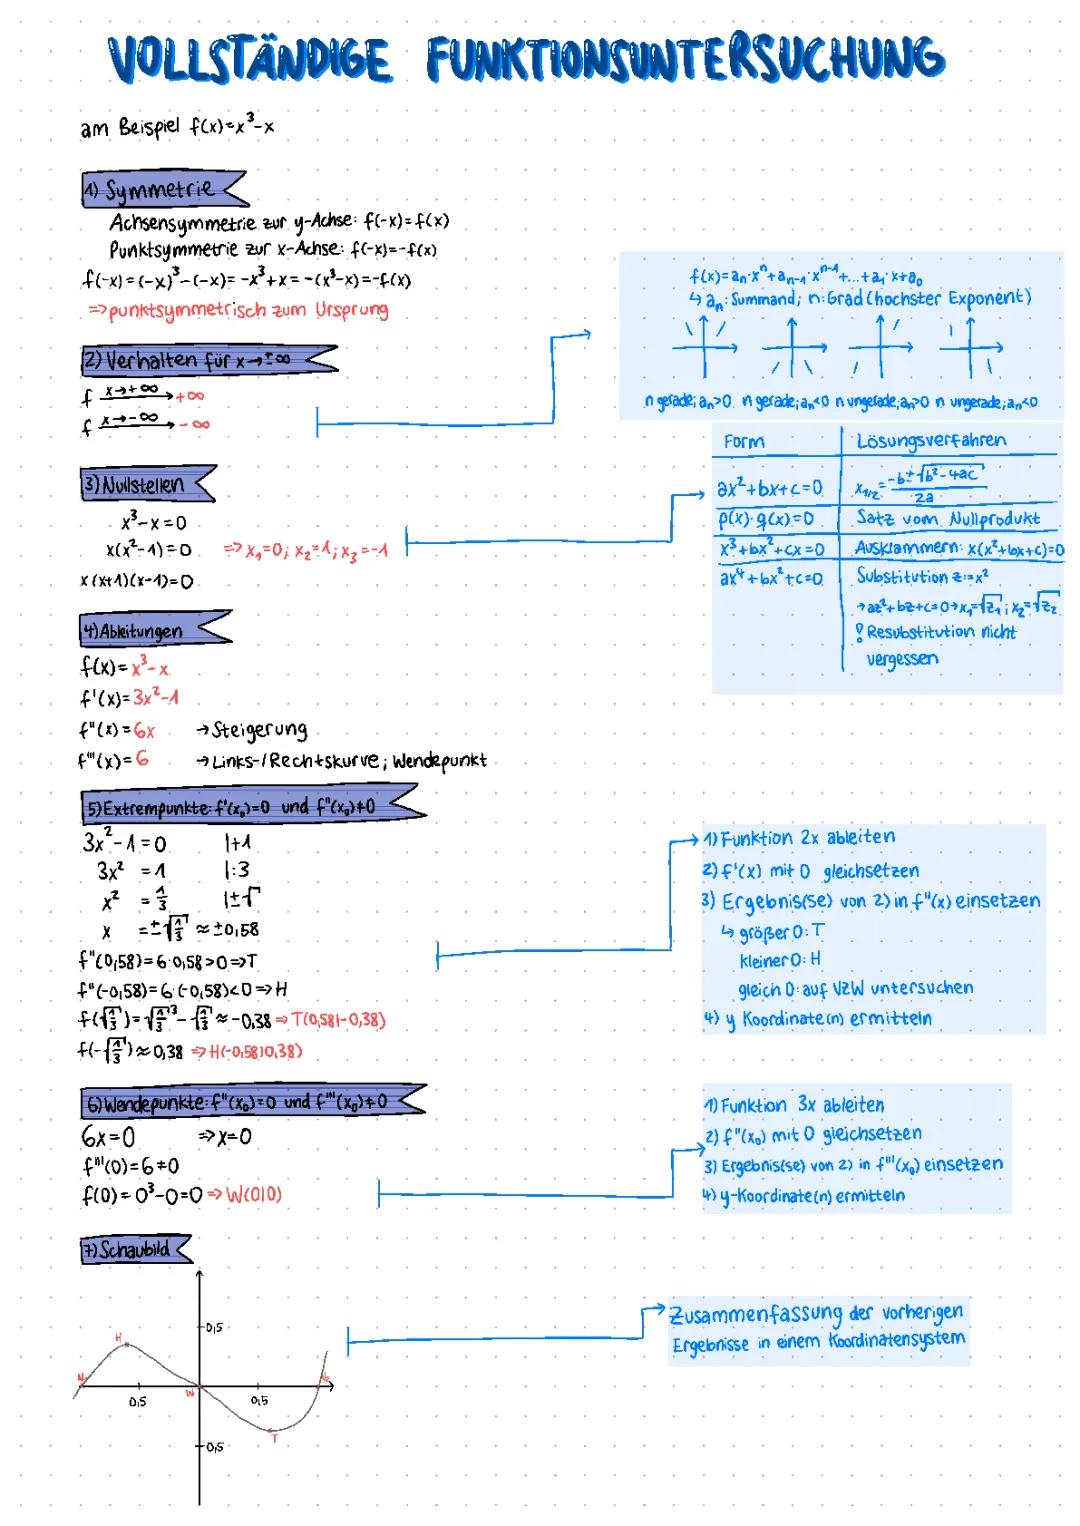 VOLLSTÄNDIGE FUNKTIONSUNTERSUCHUNG
am Beispiel f(x)=x³-x
1) Symmetrie
Achsensymmetrie zur y-Achse: f(-x)=f(x)
Punktsymmetrie zur x-Achse: f(-x)=-f(x)
f(-x)=(-x)³-(-x)=-x³+x=-(x³-x)=-f(x)
=>punktsymmetrisch zum Ursprung
2) Verhalten für x→±∞
f x→+∞ → +∞
f x→-∞ → -∞
f(x)=aₙ·xⁿ+aₙ₋₁·xⁿ⁻¹+...+a₁·x+a₀
↳ aₙ: Summand; n: Grad (höchster Exponent)
n gerade; aₙ>0 n gerade; aₙ<0 n ungerade; aₙ>0 n ungerade; aₙ<0
3) Nullstellen
x³-x=0
x(x²-1)=0 => x₁=0; x₂=1; x₃=-1
x(x+1)(x-1)=0
Form Lösungsverfahren
ax²+bx+c=0 x₁/₂=(-b±√(b²-4ac))/2a
p(x)·q(x)=0 Satz vom Nullprodukt
x³+bx²+cx=0 Ausklammern: x(x²+bx+c)=0
ax⁴+bx²+c=0 Substitution z:=x²
→az²+bz+c=0→x₁=√z₁; x₂=√z₂
! Resubstitution nicht
vergessen
4) Ableitungen
f(x)=x³-x
f'(x)=3x²-1
f"(x)=6x →Steigerung
f'''(x)=6 →Links-/Rechtskurve; Wendepunkt
5) Extrempunkte: f'(x₀)=0 und f"(x₀)≠0
3x²-1=0 |+1
3x² =1 |:3
x² =1/3 |±√
x =±√(1/3) ≈±0,58
f"(0,58)=6·0,58>0=>T
f"(-0,58)=6·(-0,58)<0=>H
f(√(1/3))=√(1/3)³-√(1/3)≈-0,38 => T(0,58|-0,38)
f(-√(1/3))≈0,38 => H(-0,58|0,38)
1) Funktion 2x ableiten
2) f'(x) mit 0 gleichsetzen
3) Ergebnis(se) von 2) in f"(x) einsetzen
↳ größer 0: T
kleiner 0: H
gleich 0: auf VZW untersuchen
4) y Koordinate(n) ermitteln
6) Wendepunkte: f"(x₀)=0 und f'''(x₀)≠0
6x=0 =>x=0
f'''(0)=6≠0
f(0)=0³-0=0 => W(0|0)
1) Funktion 3x ableiten
2) f"(x₀) mit 0 gleichsetzen
3) Ergebnis(se) von 2) in f'''(x₀) einsetzen
4) y-Koordinate(n) ermitteln
7) Schaubild
Zusammenfassung der vorherigen
Ergebnisse in einem Koordinatensystem
0,5
H
N
W
0,5
0,5
T
0,5